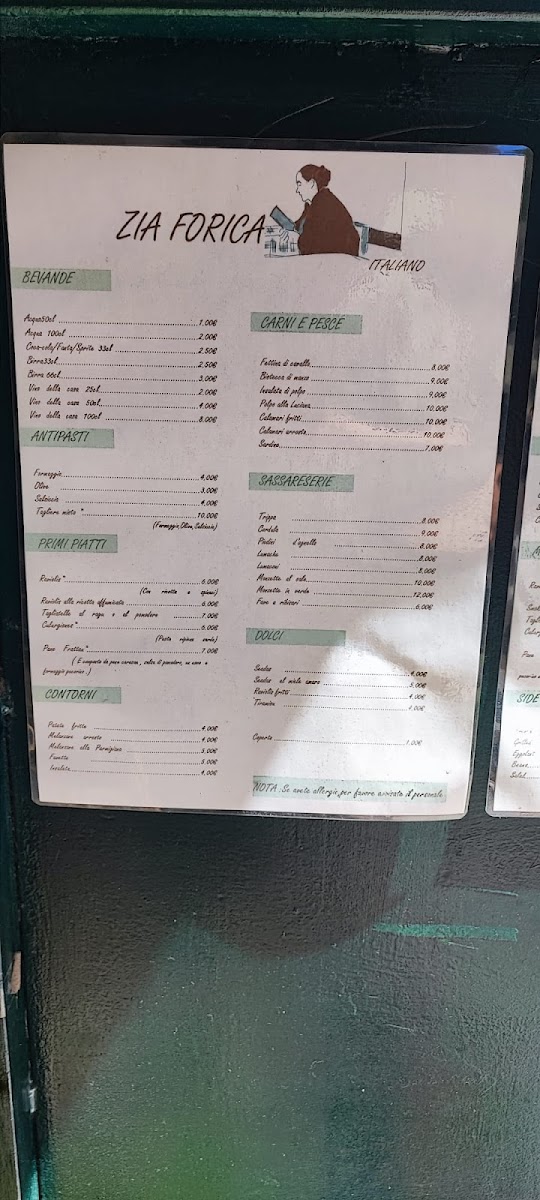 ZIA FORICA
ITALIANO
BEVANDE
Acqua50cl 1,00€
Acqua 100cl 2,00€
Coca-cola/Fanta/Sprite 33cl 2,50€
Birra33cl 2,50€
Birra 66cl 3,00€
Vino della casa 25cl 2,00€
Vino della casa 50cl 4,00€
Vino della casa 100cl 8,00€
ANTIPASTI
Formaggio 4,00€
Olive 3,00€
Salsiccia 4,00€
Tagliere misto * 10,00€
(Formaggio,Olive,Salsiccia)
PRIMI PIATTI
Raviolis* 6,00€
(Con ricotta e spinaci)
Raviolis alla ricotta affumicata 6,00€
Tagliatelle al ragu e al pomodoro 7,00€
Culurgiones* 6,00€
(Pasta ripiena varia)
Pane Frattau* 7,00€
( E composto da pane carasau, salsa di pomodoro, un uovo e
formaggio pecorino .)
CONTORNI
Patate fritte 4,00€
Melanzane arrosto 4,00€
Melanzane alla Parmigiana 5,00€
5,00€
Insalata 4,00€
CARNI E PESCE
Fettina di cavallo 8,00€
Bistecca di manzo 9,00€
Insalata di polpo 9,00€
Polpo alla Luciana 10,00€
Calamari fritti 10,00€
Calamari arrosto 10,00€
Sardine 7,00€
SASSARESERIE
Trippa 8,00€
Cordula 9,00€
Piedini d'agnello 8,00€
Lumache 8,00€
Lumaconi 8,00€
Monzette al sale 10,00€
Monzette in verde 12,00€
Fave a ribisari 6,00€
DOLCI
Seadas 4,00€
Seadas al miele amaro 5,00€
Raviolis fritti 4,00€
Tiramisu 4,00€
Coperto 1,00€
NOTA :Se avete allergie,per favore avvisate il personale
SIDE